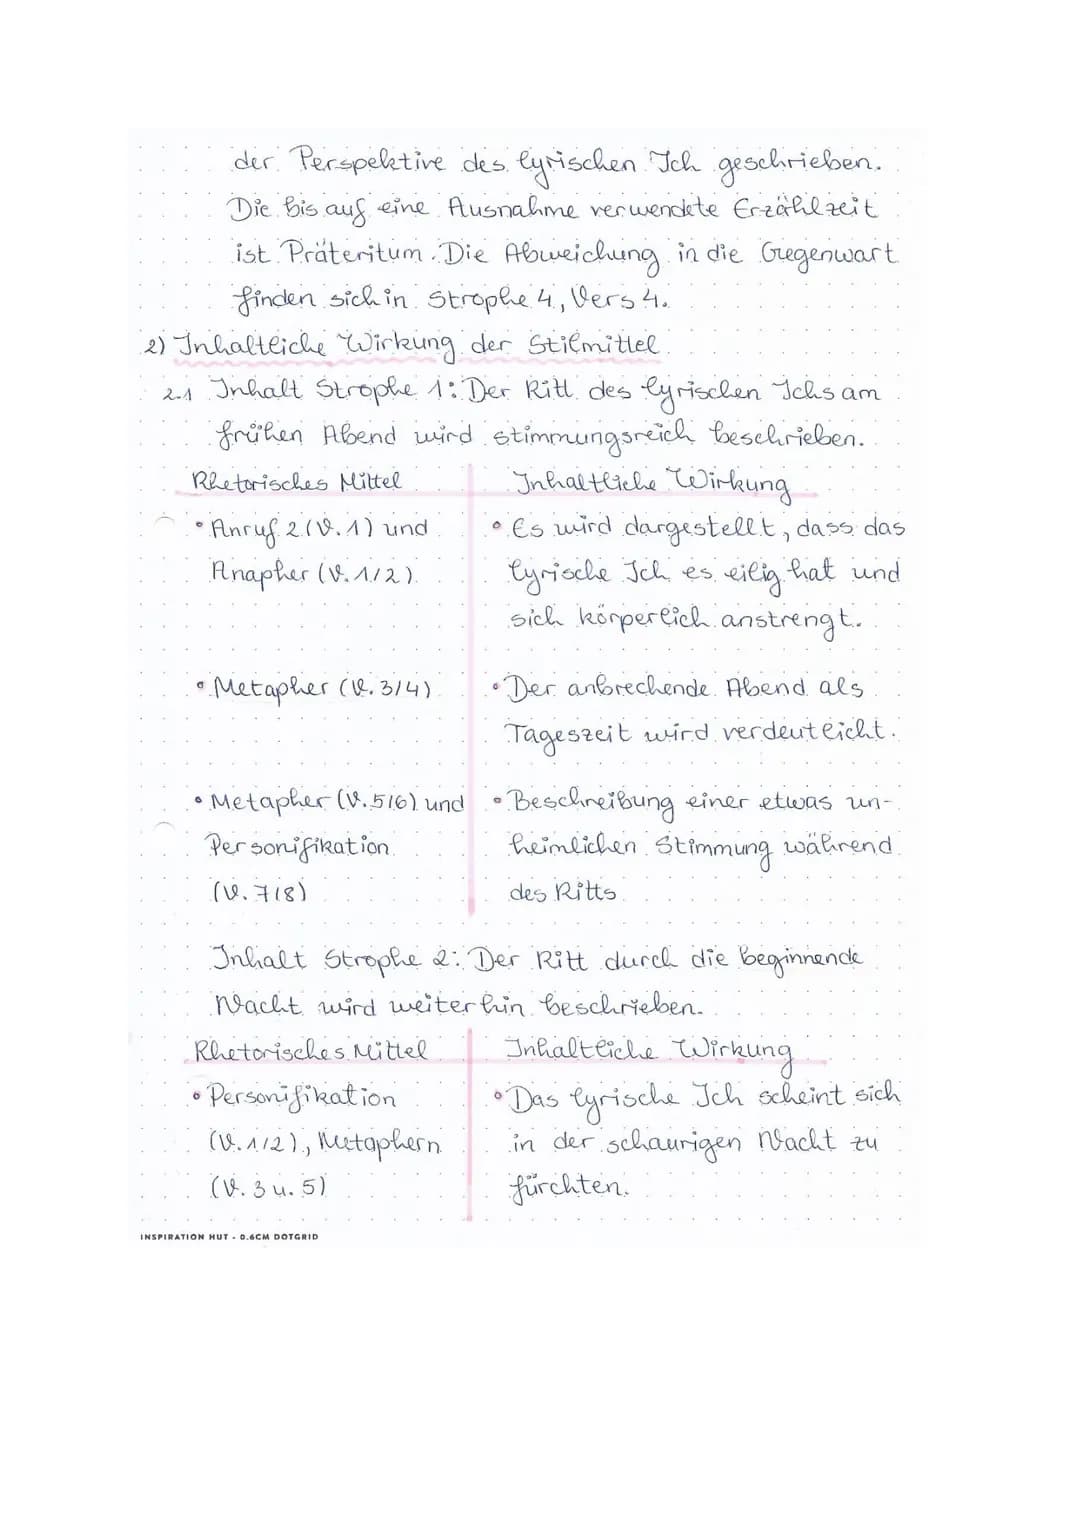 der Perspektive des lyrischen Ich geschrieben.
Die bis auf eine Ausnahme verwendete Erzählzeit
ist Präteritum. Die Abweichung in die Gegenwart
finden sich in Strophe 4, Vers 4.
2) Inhaltliche Wirkung der Stilmittel
2.1 Inhalt Strophe 1: Der Ritt des lyrischen Ichs am
frühen Abend wird stimmungsreich beschrieben.
Rhetorisches Mittel Inhaltliche Wirkung
• Anruf 2 (V. 1) und • Es wird dargestellt, dass das
Anapher (V. 1/2) lyrische Ich es eilig hat und
sich körperlich anstrengt.
• Metapher (V. 3/4) • Der anbrechende Abend als
Tageszeit wird verdeutlicht.
• Metapher (V. 5/6) und • Beschreibung einer etwas un-
Personifikation heimlichen Stimmung während
(V. 7/8) des Ritts
Inhalt Strophe 2: Der Ritt durch die beginnende
Nacht wird weiterhin beschrieben.
Rhetorisches Mittel Inhaltliche Wirkung
• Personifikation • Das lyrische Ich scheint sich
(V. 1/2), Metaphern in der schaurigen Nacht zu
(V. 3 u. 5) fürchten.
INSPIRATION HUT - 0.6CM DOTGRID